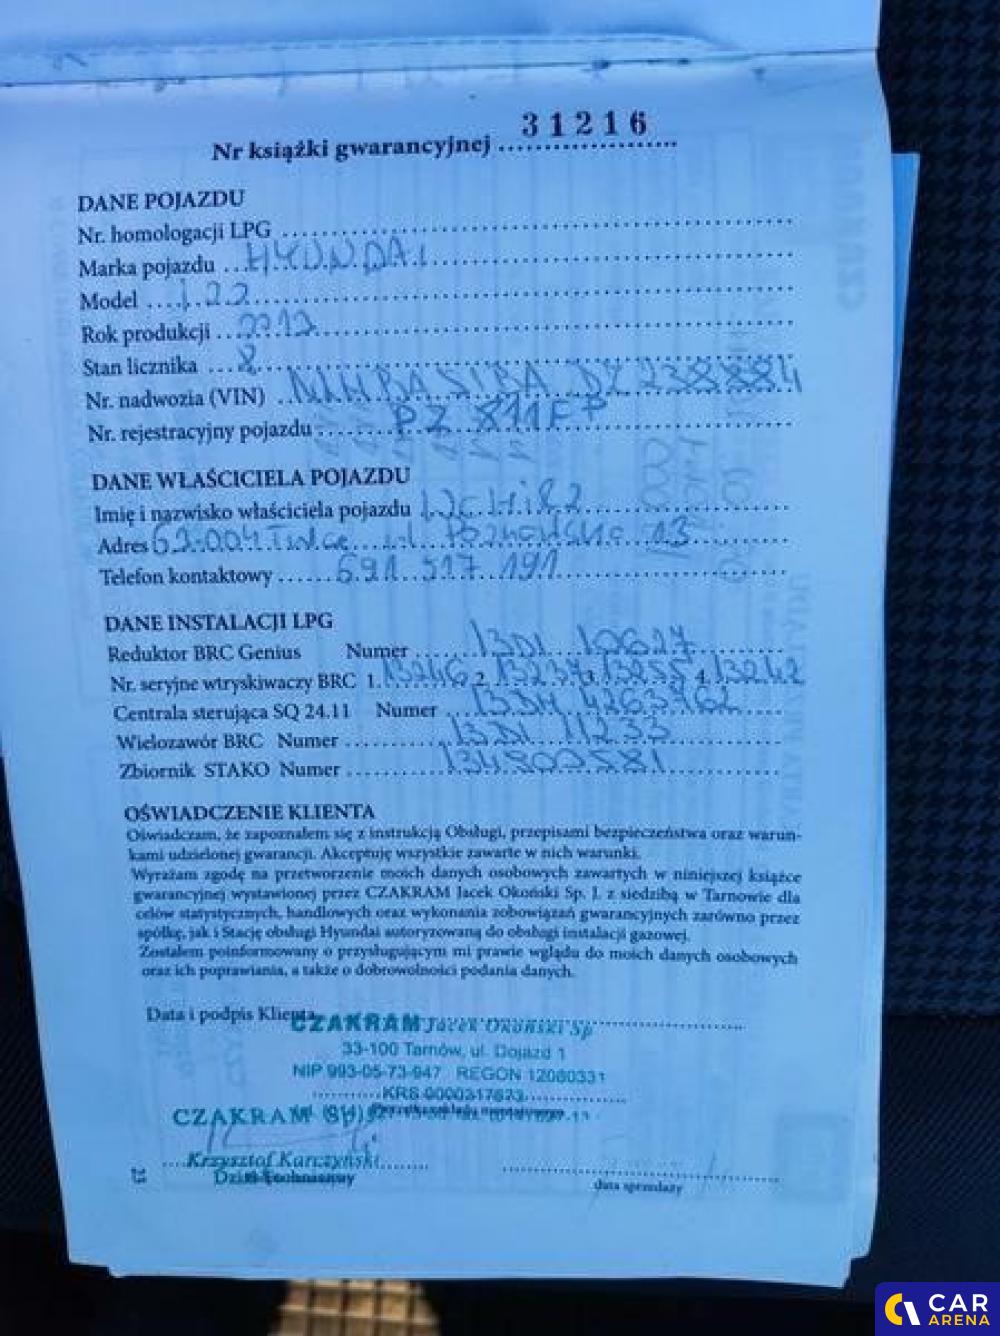 Nr książki gwarancyjnej 31216
DANE POJAZDU
Nr. homologacji LPG
Marka pojazdu HYUNDAI
Model I 22
Rok produkcji 2013
Stan licznika 8
Nr. nadwozia (VIN)
Nr. rejestracyjny pojazdu PZ 811FP
DANE WŁAŚCICIELA POJAZDU
Imię i nazwisko właściciela pojazdu
Adres 63-004 Tulce ul. 13
Telefon kontaktowy 691 517 191
DANE INSTALACJI LPG
Reduktor BRC Genius Numer 13DI 10627
Nr. seryjne wtryskiwaczy BRC 1. 13246 2. 13237 3. 13255 4. 13242
Centrala sterująca SQ 24.11 Numer
Wielozawór BRC Numer 13DI 11233
Zbiornik STAKO Numer
OŚWIADCZENIE KLIENTA
Oświadczam, że zapoznałem się z instrukcją Obsługi, przepisami bezpieczeństwa oraz warun-
kami udzielonej gwarancji. Akceptuję wszystkie zawarte w nich warunki.
Wyrażam zgodę na przetworzenie moich danych osobowych zawartych w niniejszej książce
gwarancyjnej wystawionej przez CZAKRAM Jacek Okoński Sp. J. z siedzibą w Tarnowie dla
celów statystycznych, handlowych oraz wykonania zobowiązań gwarancyjnych zarówno przez
spółkę, jak i Stację obsługi Hyundai autoryzowaną do obsługi instalacji gazowej.
Zostałem poinformowany o przysługującym mi prawie wglądu do moich danych osobowych
oraz ich poprawiania, a także o dobrowolności podania danych.
Data i podpis Klienta
CZAKRAM Jacek Okoński Sp
33-100 Tarnów, ul. Dojazd 1
NIP 993-05-73-947 REGON 12080331
KRS 0000317623
CZAKRAM
Krzysztof Karczyński
Dział Techniczny
data sprzedaży
CAR
ARENA